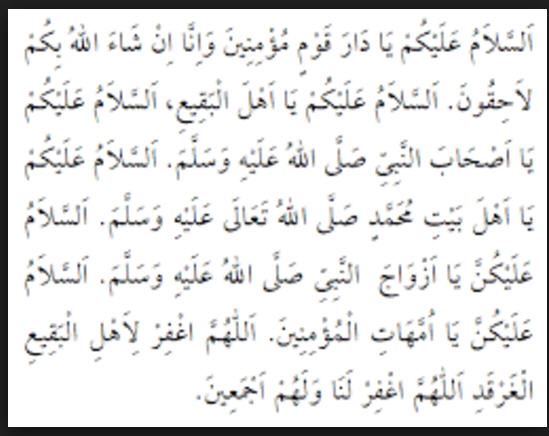 اَلسَّلاَمُ عَلَيْكُمْ يَا دَارَ قَوْمٍ مُؤْمِنِينَ وَاِنَّا اِنْ شَاءَ اللهُ بِكُمْ
لاَحِقُونَ. اَلسَّلاَمُ عَلَيْكُمْ يَا اَهْلَ الْبَقِيعِ، اَلسَّلاَمُ عَلَيْكُمْ
يَا اَصْحَابَ النَّبِيِّ صَلَّى اللهُ عَلَيْهِ وَسَلَّمَ. اَلسَّلاَمُ عَلَيْكُمْ
يَا اَهْلَ بَيْتِ مُحَمَّدٍ صَلَّى اللهُ تَعَالَى عَلَيْهِ وَسَلَّمَ. اَلسَّلاَمُ
عَلَيْكُنَّ يَا اَزْوَاجَ النَّبِيِّ صَلَّى اللهُ عَلَيْهِ وَسَلَّمَ. اَلسَّلاَمُ
عَلَيْكُنَّ يَا اُمَّهَاتِ الْمُؤْمِنِينَ. اَللّٰهُمَّ اغْفِرْ لِاَهْلِ الْبَقِيعِ
الْغَرْقَدِ اَللّٰهُمَّ اغْفِرْ لَنَا وَلَهُمْ اَجْمَعِينَ.